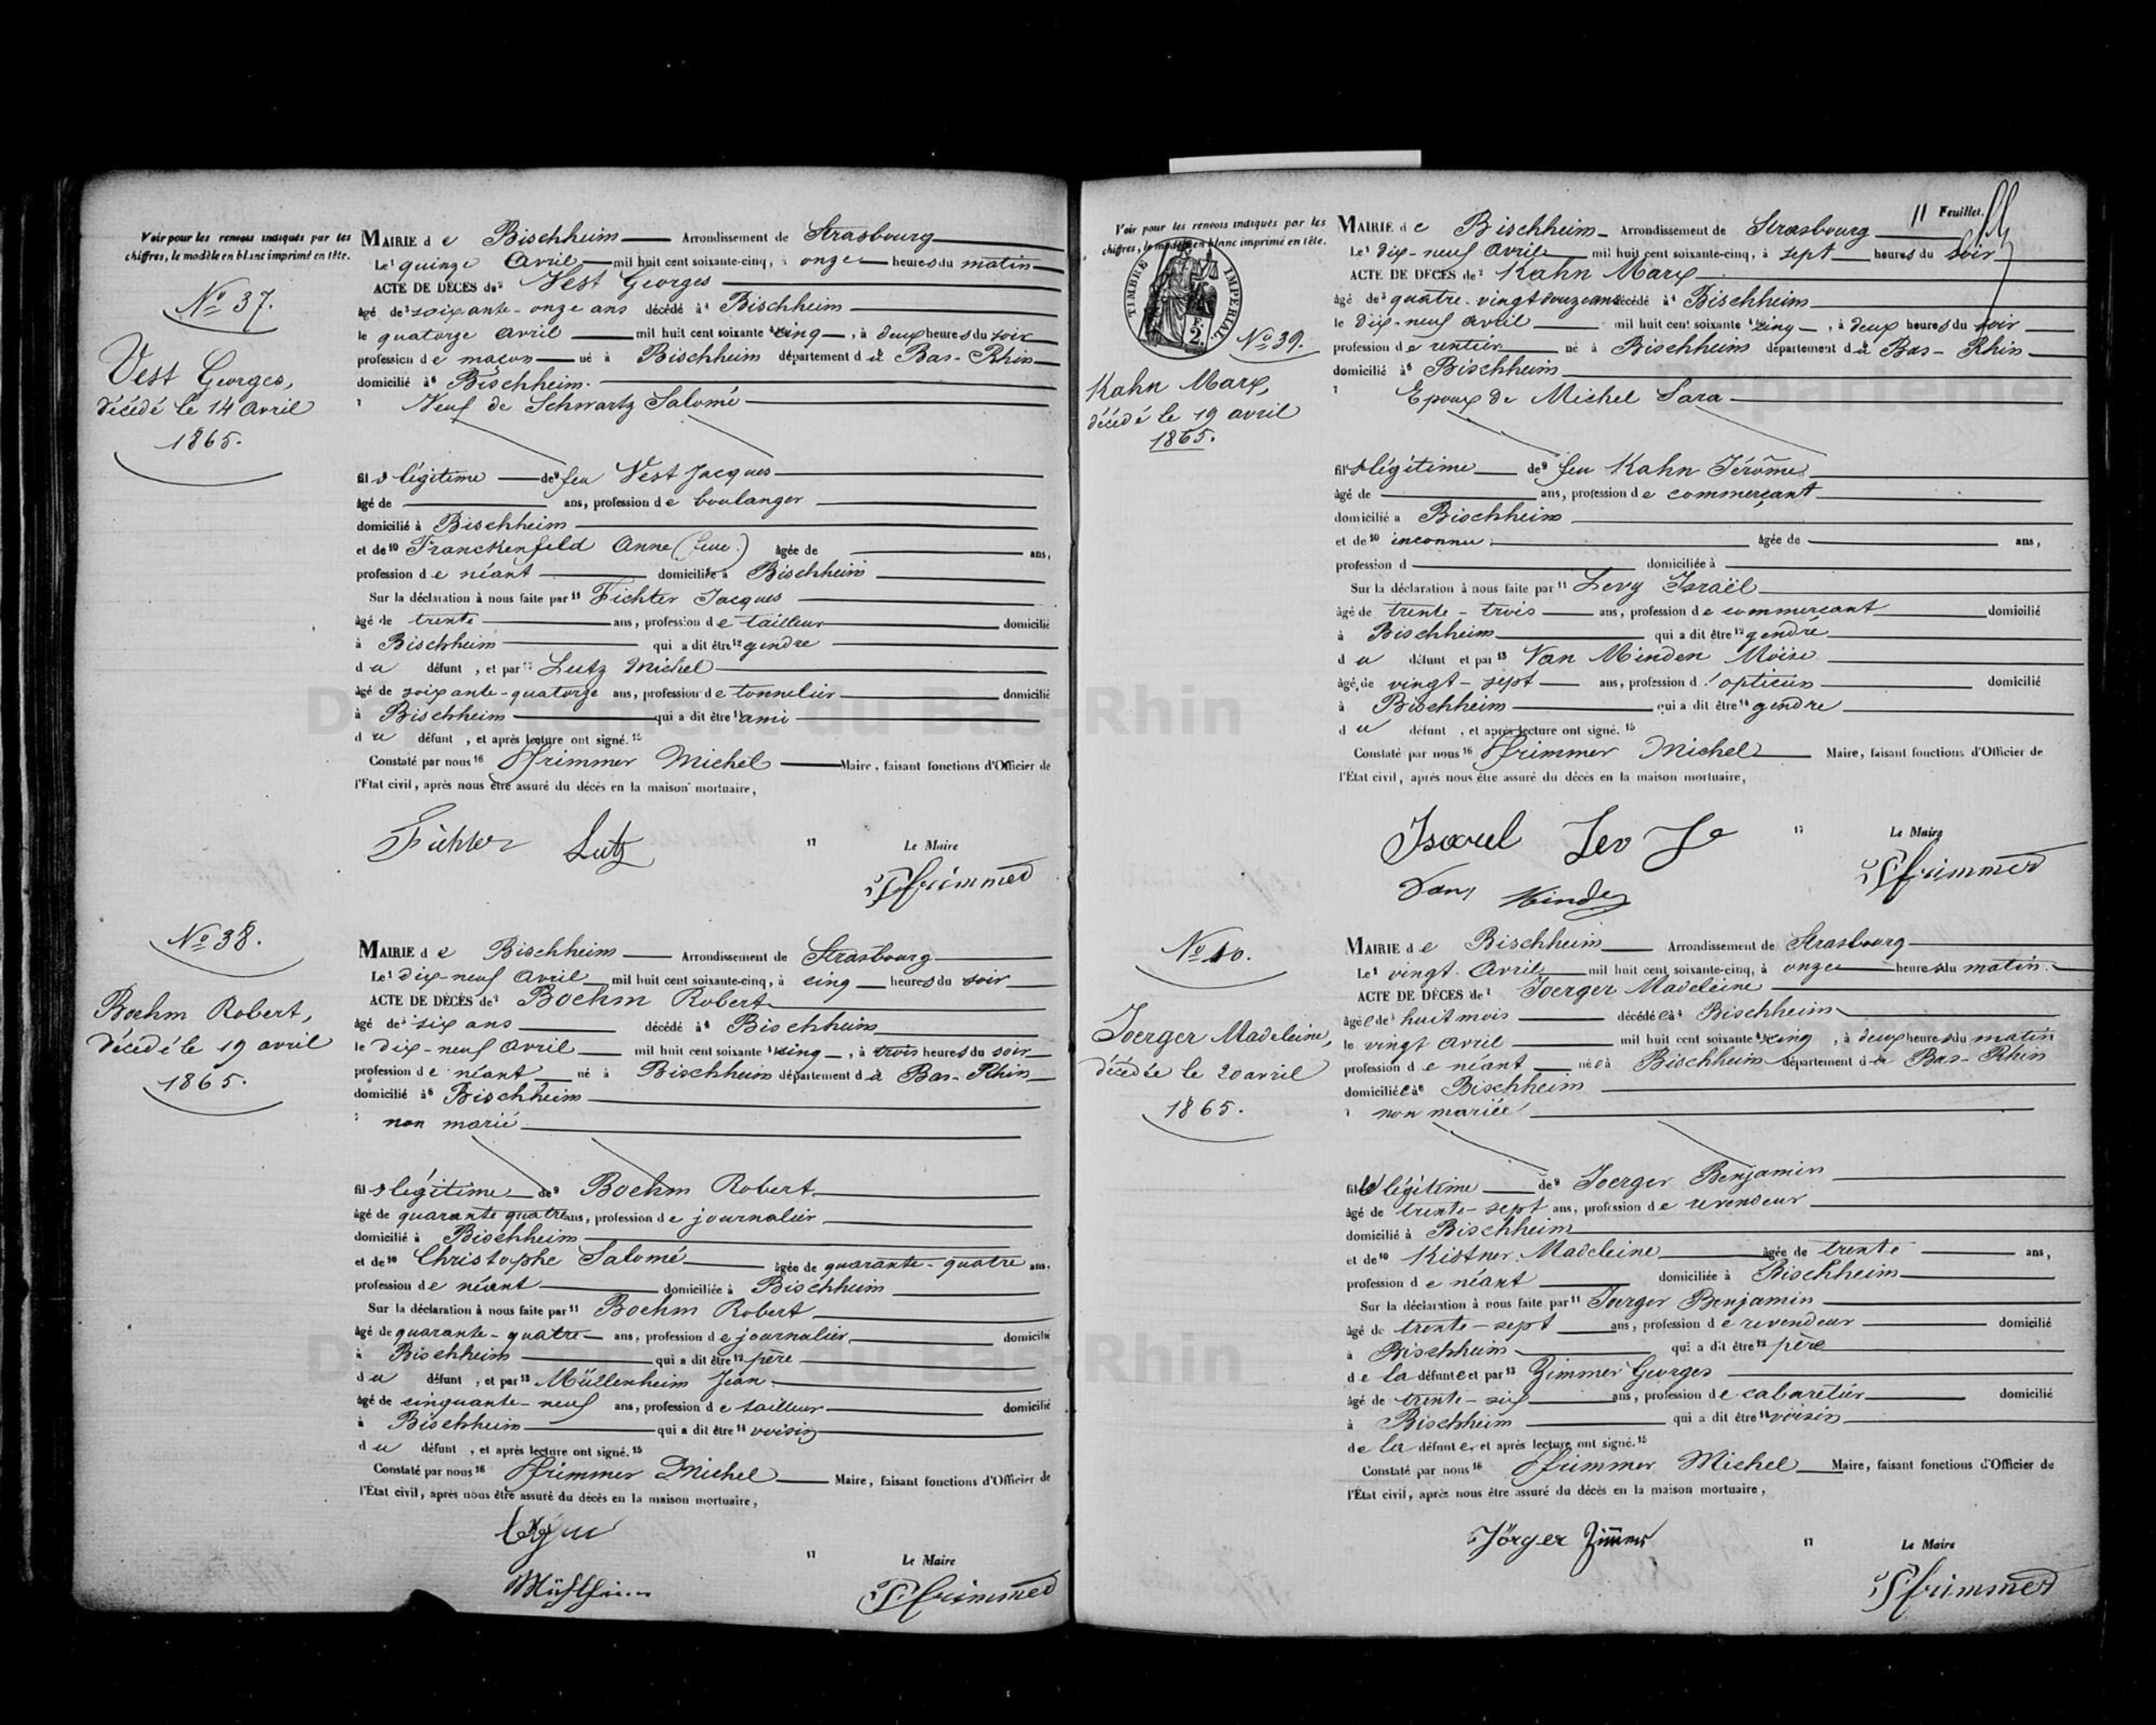 Voir pour les renvois indiqués par les
chiffres, le modèle en blanc imprimé en tête.
No 37.
Vest Georges,
décédé le 14 avril
1865.
MAIRIE de Bischheim Arrondissement de Strasbourg
Le 1 quinze avril mil huit cent soixante-cinq, à onze heures du matin
ACTE DE DÉCÈS de 2 Vest Georges
âgé de 3 soixante-onze ans décédé à 4 Bischheim
le quatorze avril mil huit cent soixante 5 cinq, à deux heures du soir
profession de maçon né à Bischheim département du Bas-Rhin
domicilié à 6 Bischheim.
7 Veuf de Schwartz Salomé
fils légitime de 9 feu Vest Jacques
âgé de ans, profession de boulanger
domicilié à Bischheim
et de 10 Franckenfeld Anne (feue) âgée de ans,
profession de néant domiciliée à Bischheim
Sur la déclaration à nous faite par 11 Fichter Jacques
âgé de trente ans, profession de tailleur domicilié
à Bischheim qui a dit être 12 gendre
du défunt, et par 13 Lutz Michel
âgé de soixante-quatorze ans, profession de tonnelier domicilié
à Bischheim qui a dit être 14 ami
du défunt, et après lecture ont signé. 15
Constaté par nous 16 Pfrimmer Michel Maire, faisant fonctions d'Officier de
l'État civil, après nous être assuré du décès en la maison mortuaire,
Fichter Lutz 17 Le Maire
Pfrimmer
No 38.
Boehm Robert,
décédé le 19 avril
1865.
MAIRIE de Bischheim Arrondissement de Strasbourg
Le 1 dix-neuf avril mil huit cent soixante-cinq, à cinq heures du soir
ACTE DE DÉCÈS de 2 Boehm Robert
âgé de 3 six ans décédé à 4 Bischheim
le dix-neuf avril mil huit cent soixante 5 cinq, à trois heures du soir
profession de néant né à Bischheim département du Bas-Rhin
domicilié à 6 Bischheim
7 non marié
fils légitime de 9 Boehm Robert
âgé de quarante quatre ans, profession de journalier
domicilié à Bischheim
et de 10 Christophe Salomé âgée de quarante-quatre ans,
profession de néant domiciliée à Bischheim
Sur la déclaration à nous faite par 11 Boehm Robert
âgé de quarante-quatre ans, profession de journalier domicilié
à Bischheim qui a dit être 12 père
du défunt, et par 13 Müllenheim Jean
âgé de cinquante-neuf ans, profession de tailleur domicilié
à Bischheim qui a dit être 14 voisin
du défunt, et après lecture ont signé. 15
Constaté par nous 16 Pfrimmer Michel Maire, faisant fonctions d'Officier de
l'État civil, après nous être assuré du décès en la maison mortuaire,
17 Le Maire
Pfrimmer
11 Feuillet.
Voir pour les renvois indiqués par les
chiffres, le modèle en blanc imprimé en tête.
TIMBRE IMPÉRIAL
2
No 39.
Kahn Marx,
décédé le 19 avril
1865.
MAIRIE de Bischheim Arrondissement de Strasbourg
Le 1 dix-neuf avril mil huit cent soixante-cinq, à sept heures du soir
ACTE DE DÉCÈS de 2 Kahn Marx
âgé de 3 quatre-vingt douze ans décédé à 4 Bischheim
le dix-neuf avril mil huit cent soixante 5 cinq, à deux heures du soir
profession de rentier né à Bischheim département du Bas-Rhin
domicilié à 6 Bischheim
7 Epoux de Michel Sara
fils légitime de 9 feu Kahn Jérôme
âgé de ans, profession de commerçant
domicilié à Bischheim
et de 10 inconnu âgée de ans,
profession d domiciliée à
Sur la déclaration à nous faite par 11 Levy Israël
âgé de trente-trois ans, profession de commerçant domicilié
à Bischheim qui a dit être 12 gendre
du défunt et par 13 Van Minden Moïse
âgé de vingt-sept ans, profession d'opticien domicilié
à Bischheim qui a dit être 14 gendre
du défunt, et après lecture ont signé. 15
Constaté par nous 16 Pfrimmer Michel Maire, faisant fonctions d'Officier de
l'État civil, après nous être assuré du décès en la maison mortuaire,
17 Le Maire
Pfrimmer
No 40.
Joerger Madeleine,
décédée le 20 avril
1865.
MAIRIE de Bischheim Arrondissement de Strasbourg
Le 1 vingt avril mil huit cent soixante-cinq, à onze heures du matin
ACTE DE DÉCÈS de 2 Joerger Madeleine
âgée de 3 huit mois décédée à 4 Bischheim
le vingt avril mil huit cent soixante 5 cinq, à deux heures du matin
profession de néant née à Bischheim département du Bas-Rhin
domiciliée à 6 Bischheim
7 non mariée
fille légitime de 9 Joerger Benjamin
âgé de trente-sept ans, profession de revendeur
domicilié à Bischheim
et de 10 Kistner Madeleine âgée de trente ans,
profession de néant domiciliée à Bischheim
Sur la déclaration à nous faite par 11 Joerger Benjamin
âgé de trente-sept ans, profession de revendeur domicilié
à Bischheim qui a dit être 12 père
de la défunte et par 13 Zimmer Georges
âgé de trente-six ans, profession de cabaretier domicilié
à Bischheim qui a dit être 14 voisin
de la défunte, et après lecture ont signé. 15
Constaté par nous 16 Pfrimmer Michel Maire, faisant fonctions d'Officier de
l'État civil, après nous être assuré du décès en la maison mortuaire,
Jörger Zimmer 17 Le Maire
Pfrimmer
Département du Bas-Rhin